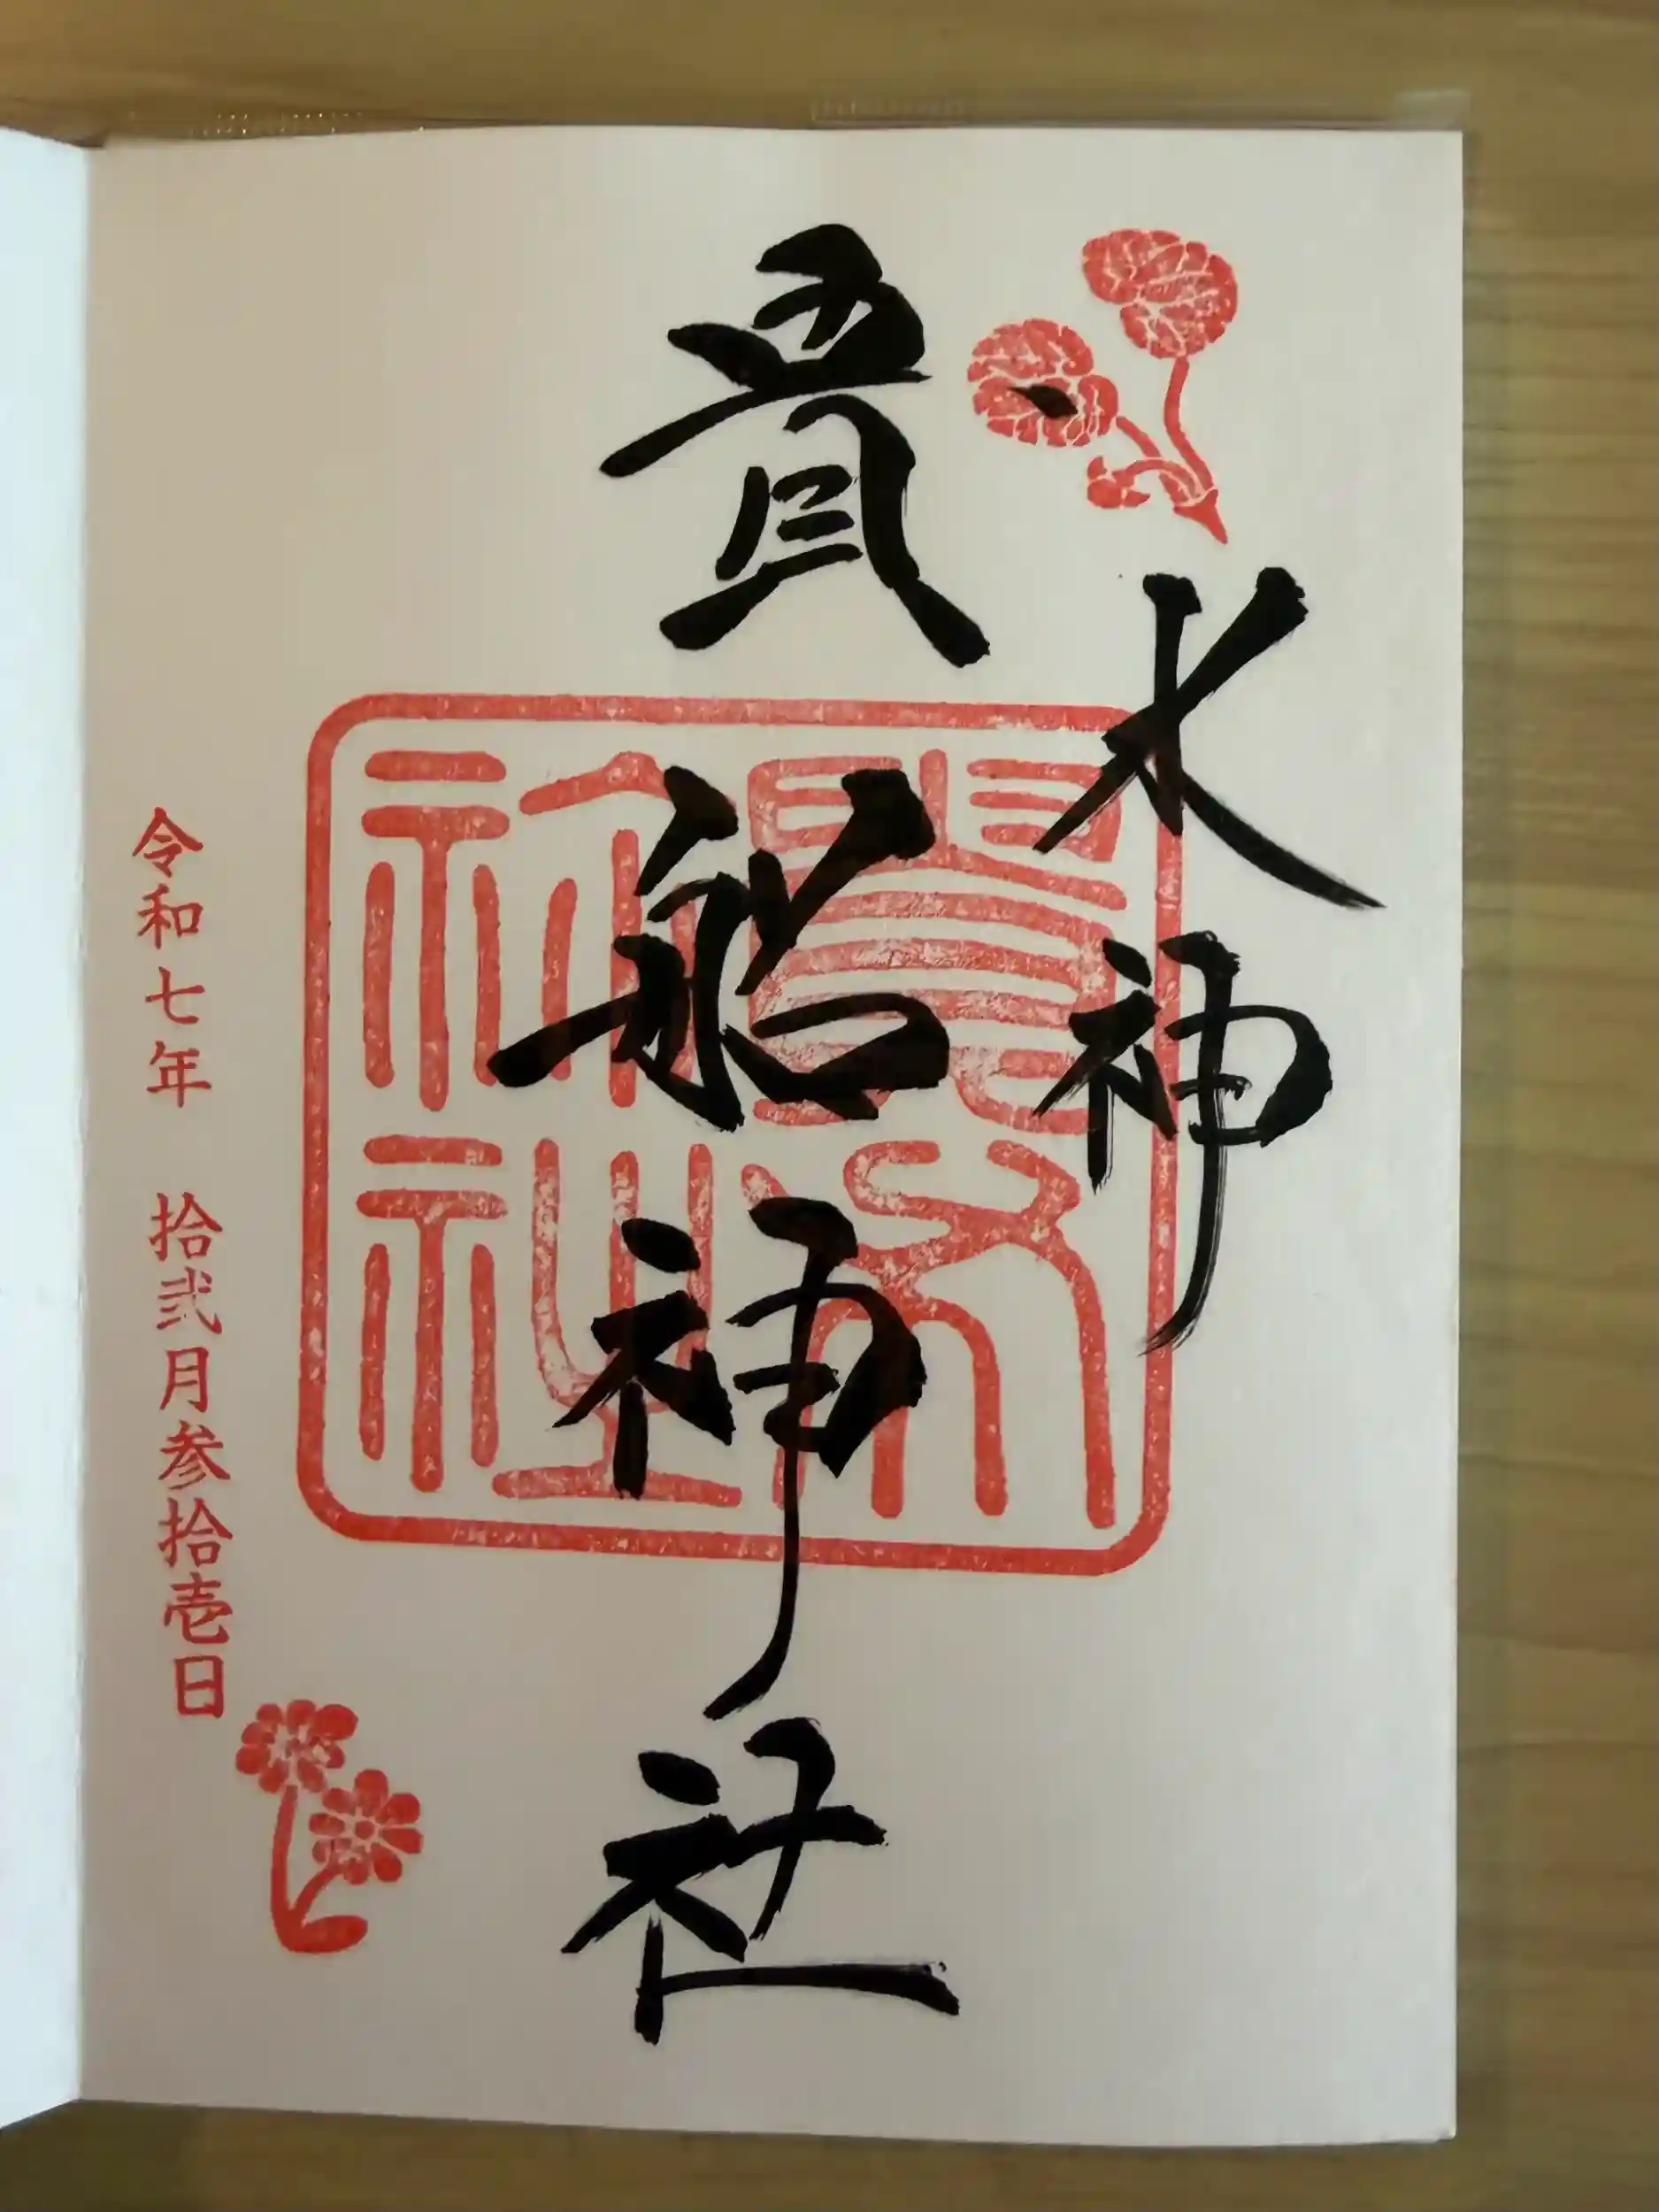 水神
貴船神社
貴布祢社
令和七年 拾弐月参拾壱日